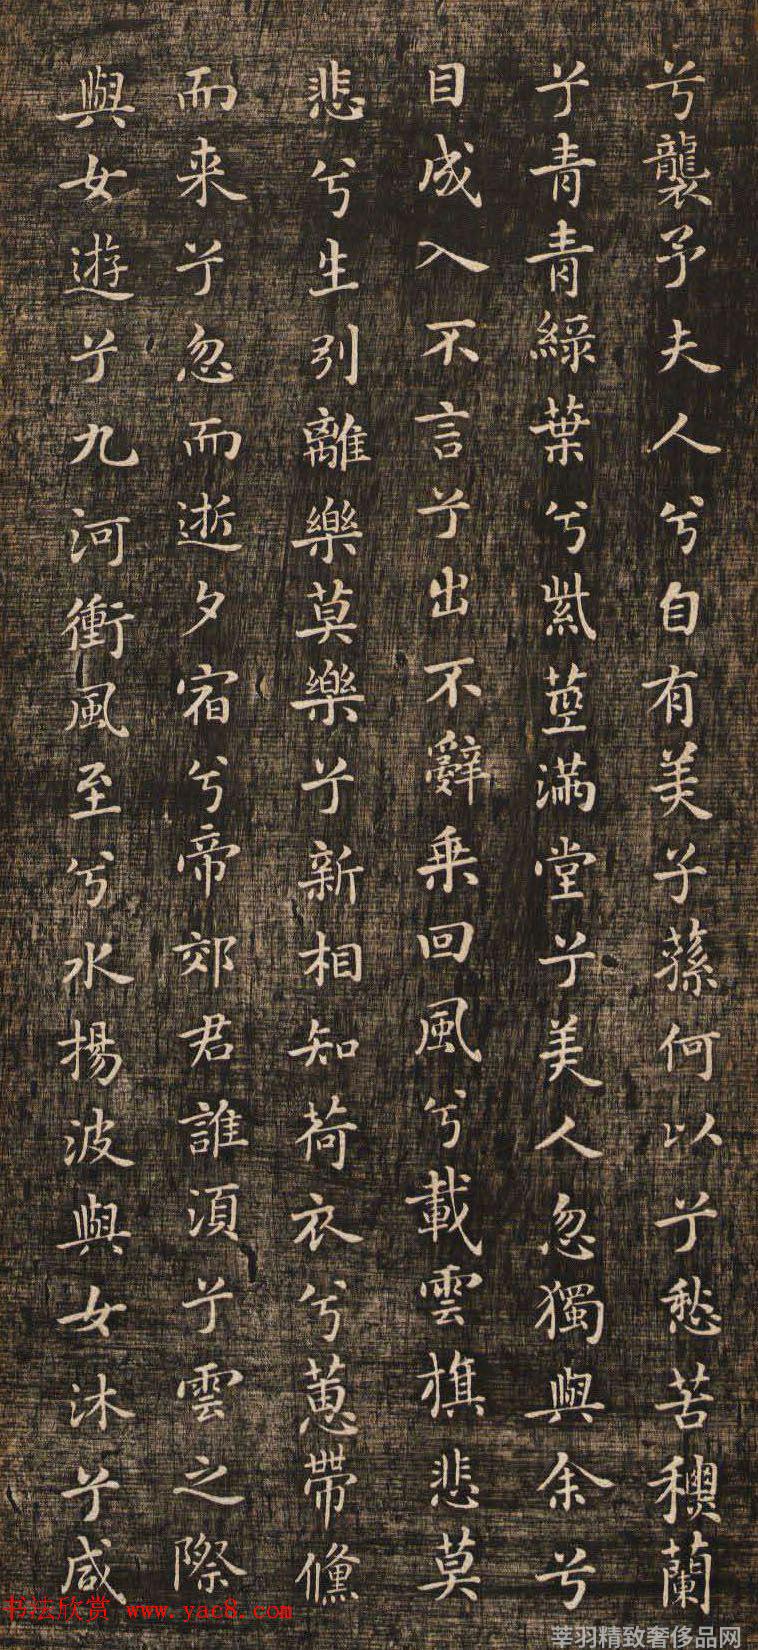 兮襲予夫人兮自有美子蓀何以兮愁苦穠蘭
兮青青綠葉兮紫莖滿堂兮美人忽獨與余兮
目成入不言兮出不辭乗回風兮載雲旗悲莫
悲兮生別離樂莫樂兮新相知荷衣兮蕙帶儵
而来兮忽而逝夕宿兮帝郊君誰須兮雲之際
與女遊兮九河衝風至兮水揚波與女沐兮咸
书法欣赏 www.yac8.com
莘羽精致奢侈品网